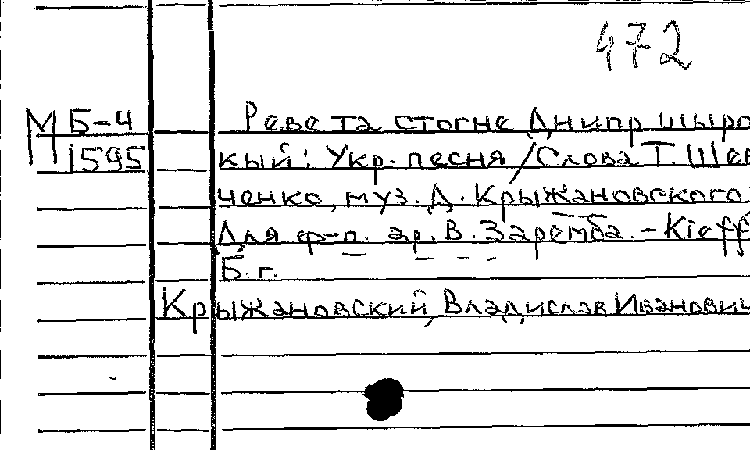 472
М Б-4
1595
Реве та стогне Днипр шыро
кый: Укр. песня / Слова Т. Шев
ченко, муз. Д. Крыжановского
Для ф-п. ар. В. Заремба. - Kieff
Б. г.
Крыжановский, Владислав Иванович